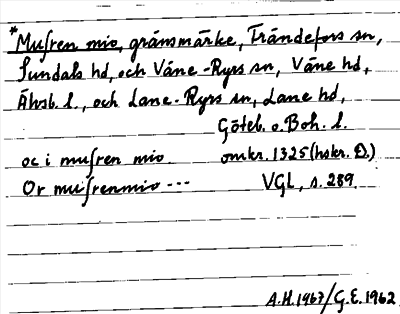 *Musren mio, gränsmärke, Frändefors sn,
Sundals hd, och Väne-Ryrs sn, Väne hd,
Älvsb. l., och Lane-Ryrs sn, Lane hd,
Göteb. o. Boh. l.
oc i musren mio. omkr. 1325 (hskr. D.)
Or muisrenmio --- VGL, s. 289
A.H. 1967/G.E. 1962